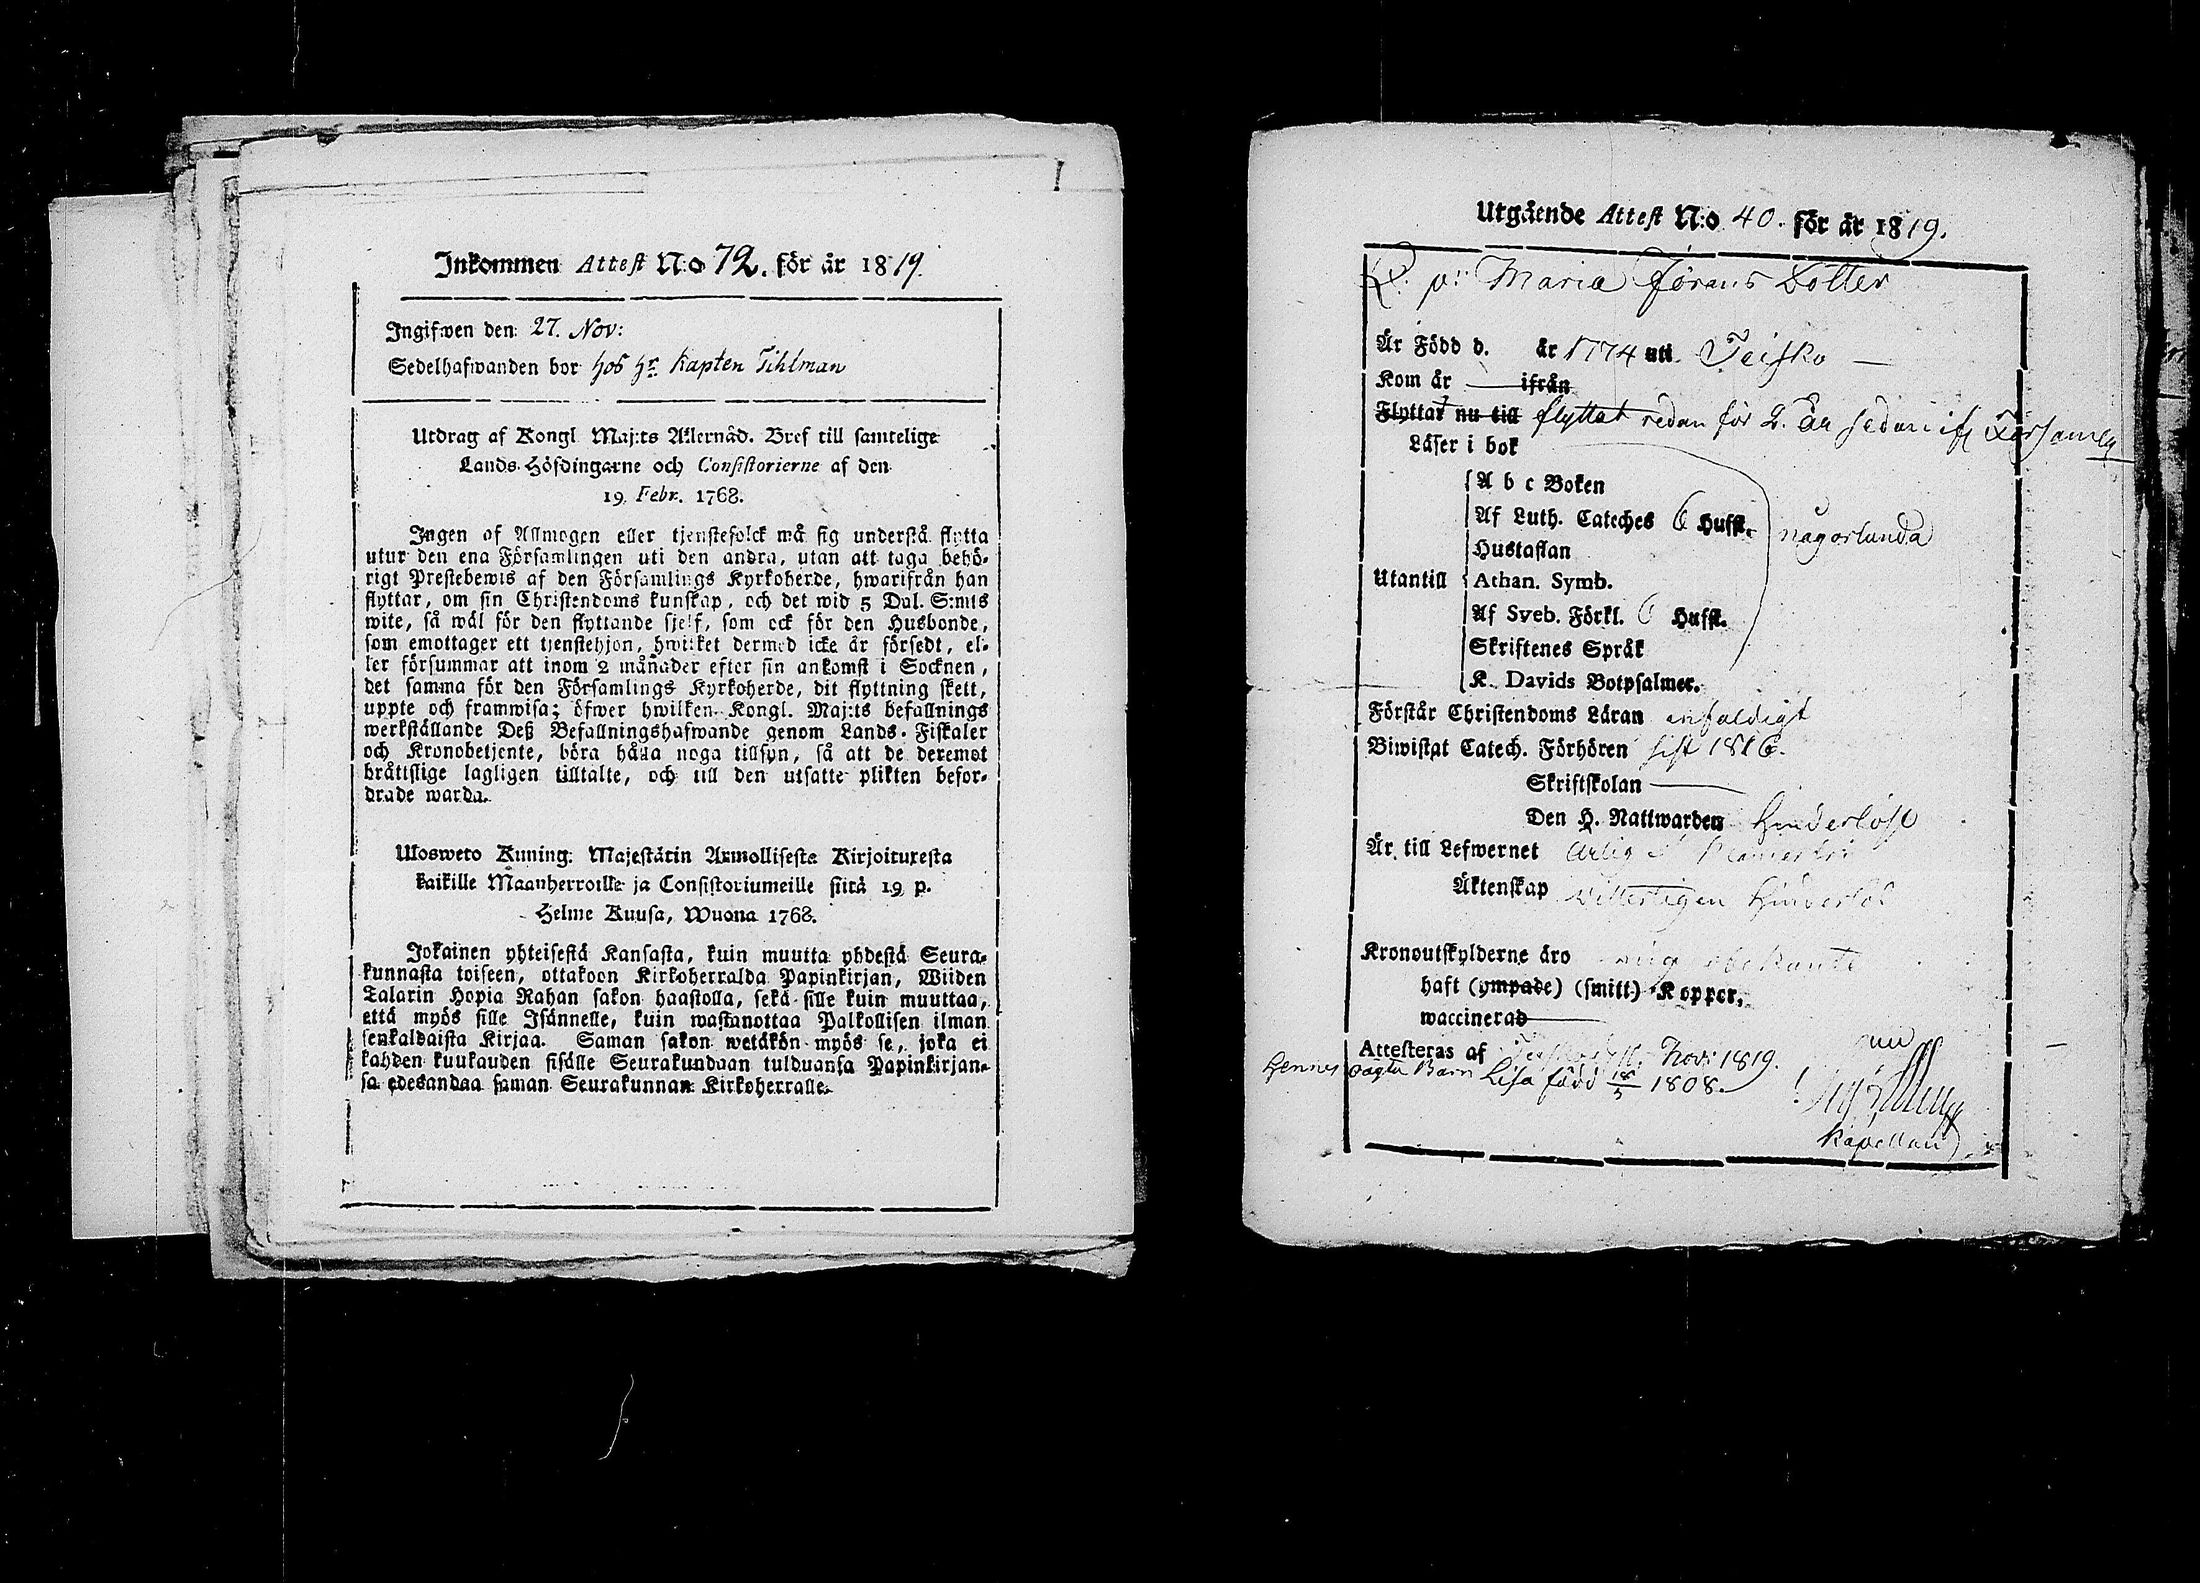 Inkommen Attest N:o 72. för år 1819.
Ingifwen den 27. Nov:
Sedelhafwanden bor hos Hr Kapten Tihlman
Utdrag af Kongl. Maj:ts Allernåd. Bref till samtelige
Lands-Höfdingarne och Consistorierne af den
19. Febr. 1768.
Ingen af Allmogen eller tjenstefolck må sig understå flytta
utur den ena Församlingen uti den andra, utan att taga behö-
rigt Prestebewis af den Församlings Kyrkoherde, hwarifrån han
flyttar, om sin Christendoms kunskap, och det wid 5 Dal. S:mts
wite, så wäl för den flyttande sjelf, som ock för den Husbonde,
som emottager ett tjenstehjon, hwilket dermed icke är försedt, el-
ler försummar att inom 2 månader efter sin ankomst i Socknen,
det samma för den Församlings Kyrkoherde, dit flyttning skett,
uppte och framwisa; öfwer hwilken Kongl. Maj:ts befallnings
werkställande Deß Befallningshafwande genom Lands-Fiskaler
och Kronobetjente, böra hålla noga tillsyn, så att de deremot
bråttslige lagligen tilltalte, och till den utsatte plikten befor-
drade warda.
Ulosweto Kuning: Majestätin Armollisesta Kirjoituxesta
kaikille Maanherroille ja Consistoriumeille siitä 19 p.
Helme Kuusa, Wuona 1768.
Jokainen yhteisestä Kansasta, kuin muutta yhdestä Seura-
kunnasta toiseen, ottakoon Kirkoherralda Papinkirjan, Wiiden
Talarin Hopia Rahan sakon haastolla, sekä sille kuin muuttaa,
että myös sille Isännelle, kuin wastanottaa Palkollisen ilman
senkaldaista Kirjaa. Saman sakon wetäkön myös se, joka ei
kahden kuukauden sisälle Seurakundaan tulduansa Papinkirjan-
sa edesandaa saman Seurakunnan Kirkoherralle.
Utgående Attest N:o 40. för år 1819.
Q: p: Maria Jörans Dotter
Är Född d. år 1774 uti Teisko
Kom år ifrån
Flyttar nu till flyttat redan för 2. År sedan if Församlg
Läser i bok
A b c Boken
Af Luth. Cateches 6 Hufst.
någorlunda
Hustaflan
Utantill Athan. Symb.
Af Sveb. Förkl. 6 Hufst.
Skriftenes Språk
K. Davids Botpsalmer.
Förstår Christendoms Läran enfaldigt
Biwistat Catech. Förhören sist 1816.
Skriftskolan
Den H. Nattwarden Hinderlöst
Är till Lefwernet ärlig
Äktenskap Hinderlös
Kronoutskylderne äro mig obekante
haft (ympade) (smitt) Koppor,
waccinerad
Attesteras af Nov: 1819.
Hennes oägta Barn Lisa född 18/5 1808.
Kapellan